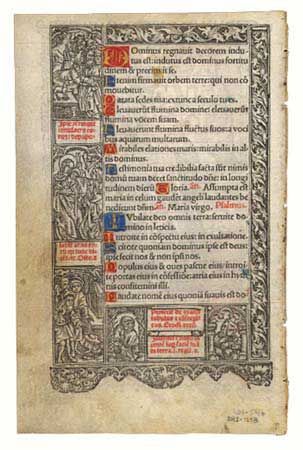 Dominus regnauit decorem indu
tus est: indutus est dominus fortitu
dinem et precinxit se.
Etenim firmauit orbem terre: qui non cō
mouebitur.
Parata sedes tua ex tunc: a seculo tu es.
Eleuauerūt flumina domine: eleuauerūt
flumina vocem suam.
Eleuauerūt flumina fluctus suos: a voci
bus aquarum multarum.
Mirabiles elationes maris: mirabilis in al
tis dominus.
Testimonia tua credibilia facta sūt nimis
domū tuam decet sanctitudo dñe: in longi
tudinem dierū Gloria. añ. Assumpta est
maria in celum gaudēt angeli laudantes be
nedicunt dñm añ. Maria virgo. Psalmus.
Jubilate deo omnis terra: seruite do
mino in leticia.
Introite in cōspectu eius: in exultatione.
Scitote quoniam dominus ipse est deus:
ipse fecit nos & non ipsi nos.
Populus eius & oues pascue eius: intro
ite portas eius in cōfessione: atria eius in hy
nis confitemini illi.
Laudate nomē eius quoniā suauis est do